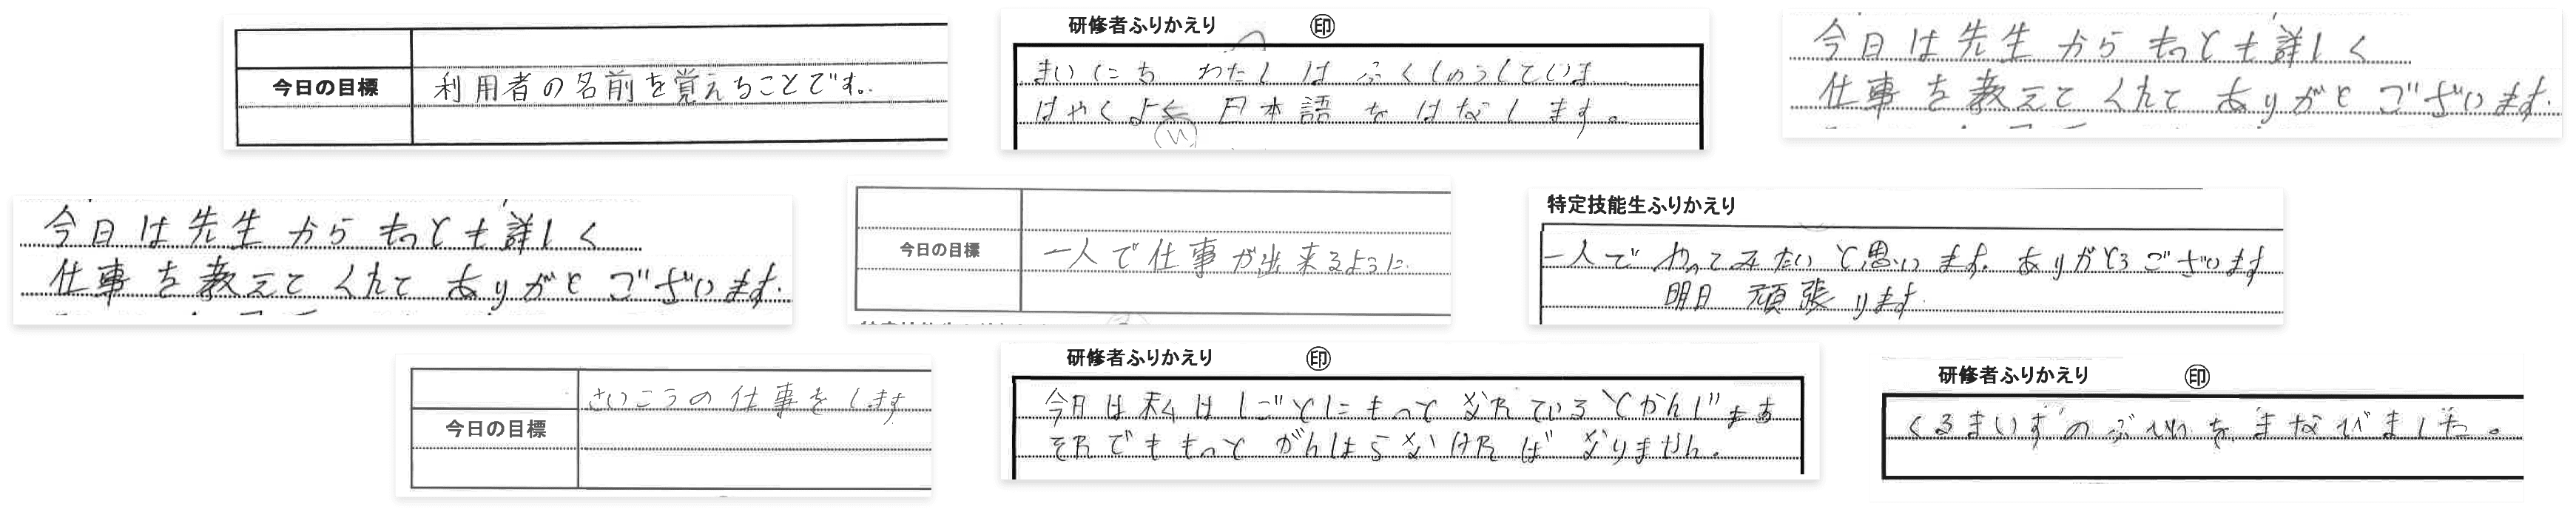 今日の目標
利用者の名前を覚えることです。
研修者ふりかえり 印
まいにち わたしは ふくしゅうしていま
はやくよく 日本語 を はなします。
い
今日は先生から もっとも詳しく
仕事を教えて くれて ありがと ございます.
今日は先生から もっとも詳しく
仕事を教えて くれて ありがと ございます.
今日の目標
一人で仕事が出来るように.
特定技能生ふりかえり
一人で やってみたいと思います. ありがとう ございます
明日 頑張ります.
今日の目標
さいこうの仕事をします
研修者ふりかえり 印
今日は私はしごとにもっと なれているとかんじます
それでももっと がんばらなければ なりません.
研修者ふりかえり 印
くるまいすの を まなびました。